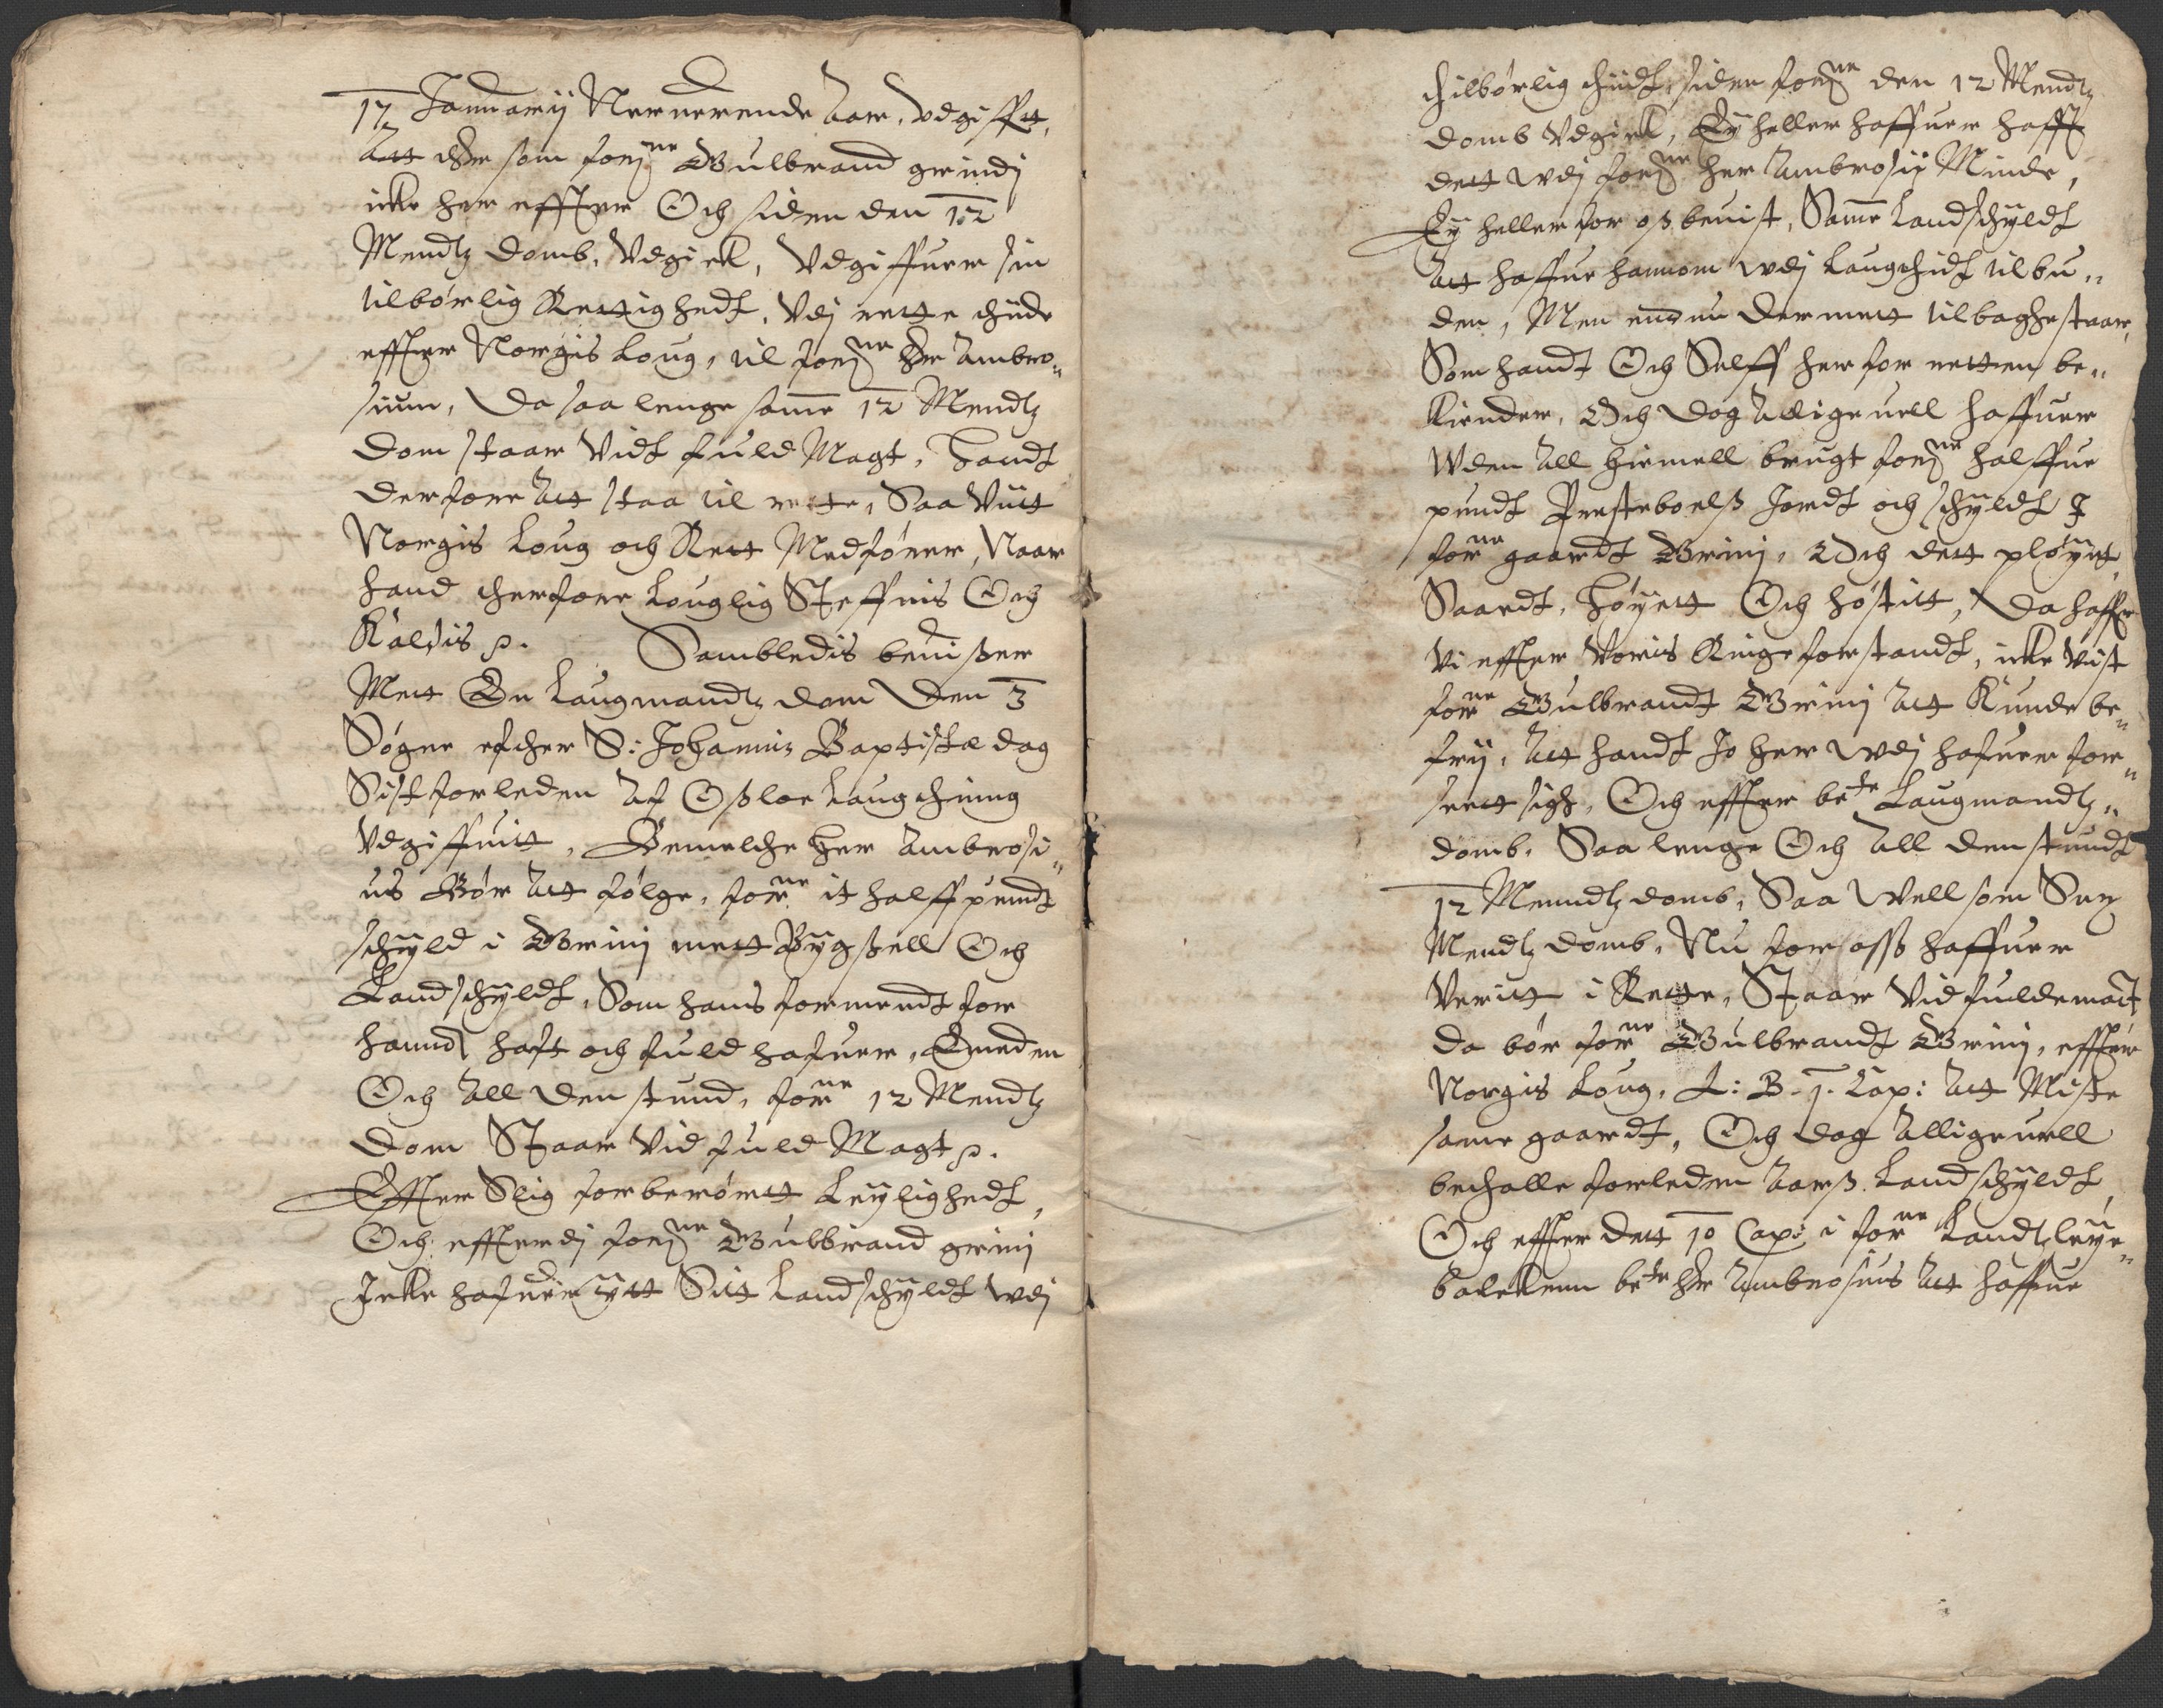 17 Januarij Nerverende Aar, vdgiffet,
Att Der som forne Gulbrand grindj
icke her effther Och siden den 12
Mendtz domb, Vdgick, Vdgiffuer sin
tilbørlig Rettighedt, Vdj rette thide
effther Norgis Loug, til forne Her Ambro„
sium, Da saa lenge samme 12 Mendtz
dom staar Vidt fuld Magt, Handt
derfore Att staa til rette, Saa Vitt
Norgis Loug och Rett Medfører, Naar
hand therfore Louglig Steffnis Och
Kaldis p. Sambledis beuisßer
Mett En Laugmandtz dom Den 3
Søgne efther S: Johannis Baptistæ dag
Sist forleden Af Opsloe Laugthing
Vdgiffuitt, Bemelthe Her Ambrosi„
us Bør Att følge, forne it halff pundt
schyld i Grinj mett Bygßell Och
Landschyldt, Som hans formendt for
hannd haft och fuld hafuer, Emeden
Och All Den stund, forne 12 Mendtz
dom Staar Vid fuld Magt p.
Effther Slig forberømett Leylighedt,
Och effterdj forne Gulbrand grinj
Icke hafuer ytt Sitt Landschyldt vdj
thilbørlig thidt, siden forne den 12 Mendtz
domb Vdgick, Ey heller haffuer hafft
dett vdj forne her Ambrosij Minde,
Ey heller for oß beuist, Samme Landschyldt
Att haffue hannom vdj Laugthidt tilbu„
den, Men endnu dermett tilbaghestaar,
Som handt Och Self her for retten be„
kiender, Och dog Alligeuell haffuer
Uden All hiemell brugt forne halffue
pundt Presteboelß Jordt och schyldt I
forne gaardt Grinj, Och dett pløyet,
Saardt, Høyett Och høstitt, Da haffer
Vi effther Voris Ringe forstandt, icke Vist
forne Gulbrandt Grinj Att Kunde be„
frij, Att handt Jo her vdj hafuer for„
seett sigh, Och effther bete Laugmandtz„
domb, Saa lenge Och All den stundt
12 Menndtz domb, Saa Vell som Sex
Mendtz domb, Nu for oss haffuer
Veritt i Rette, Staar Vid fuldemact
da bør forne Gulbrandt Grinj, effther
Norgis Loug, L: B. 1. Cap: Att Miste
same gaardt, Och dog Alligeuell
bethalle forleden Aarß Landschyldt,
Och effther dett 10 Cap: i forne Landtzleye„
balckenn bete Her Ambrosius Att haffue